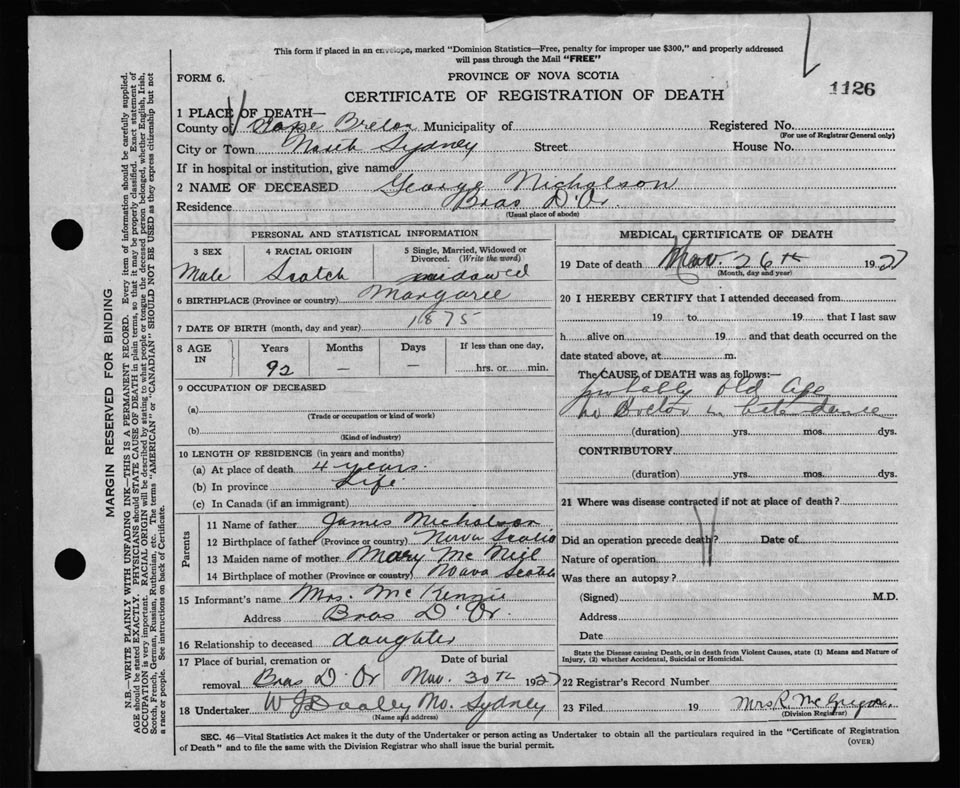 This form if placed in an envelope, marked "Dominion Statistics—Free, penalty for improper use $300," and properly addressed
will pass through the Mail "FREE"
FORM 6.
PROVINCE OF NOVA SCOTIA
1126
CERTIFICATE OF REGISTRATION OF DEATH
1 PLACE OF DEATH—
County of Cape Breton Municipality of Registered No.
(For use of Registrar General only)
City or Town North Sydney Street House No.
If in hospital or institution, give name
2 NAME OF DECEASED George Nicholson
Residence Bras D'Or.
(Usual place of abode)
PERSONAL AND STATISTICAL INFORMATION
3 SEX 4 RACIAL ORIGIN 5 Single, Married, Widowed or Divorced. (Write the word)
Male Scotch widowed
6 BIRTHPLACE (Province or country) Margaree
7 DATE OF BIRTH (month, day and year) 1875
8 AGE IN Years Months Days If less than one day,
92 — — hrs. or min.
9 OCCUPATION OF DECEASED
(a)
(Trade or occupation or kind of work)
(b)
(Kind of industry)
10 LENGTH OF RESIDENCE (in years and months)
(a) At place of death 4 years.
(b) In province Life
(c) In Canada (if an immigrant)
Parents
11 Name of father James Nicholson
12 Birthplace of father (Province or country) Nova Scotia
13 Maiden name of mother Mary Mc Neil
14 Birthplace of mother (Province or country) Nova Scotia
15 Informant's name Mrs. Mc Kenzie
Address Bras D'Or.
16 Relationship to deceased daughter
17 Place of burial, cremation or Date of burial
removal Bras D'Or Nov. 30th 1927
18 Undertaker W J Dooley No. Sydney
(Name and address)
MEDICAL CERTIFICATE OF DEATH
19 Date of death Nov. 26th 1927
(Month, day and year)
20 I HEREBY CERTIFY that I attended deceased from
19 to 19 that I last saw
h alive on 19 and that death occurred on the
date stated above, at m.
The CAUSE OF DEATH was as follows:—
probably old age
no Doctor in attendance
(duration) yrs. mos. dys.
CONTRIBUTORY
(duration) yrs. mos. dys.
21 Where was disease contracted if not at place of death?
Did an operation precede death? Date of
Nature of operation
Was there an autopsy?
(Signed) M.D.
Address
Date
State the Disease causing Death, or in death from Violent Causes, state (1) Means and Nature of
Injury, (2) whether Accidental, Suicidal or Homicidal.
22 Registrar's Record Number
23 Filed 19 Mrs R. McGregor.
(Division Registrar)
SEC. 46—Vital Statistics Act makes it the duty of the Undertaker or person acting as Undertaker to obtain all the particulars required in the "Certificate of Registration
of Death" and to file the same with the Division Registrar who shall issue the burial permit.
(OVER)
MARGIN RESERVED FOR BINDING
N.B.—WRITE PLAINLY WITH UNFADING INK—THIS IS A PERMANENT RECORD. Every item of information should be carefully supplied.
AGE should be stated EXACTLY. PHYSICIANS should STATE CAUSE OF DEATH in plain terms, so that it may be properly classified. Exact statement of
OCCUPATION is very important. RACIAL ORIGIN will be described by stating to what people or tongue the deceased person belonged, whether English, Irish,
Scotch, French, German, Russian, Ruthenian, etc. The terms "AMERICAN" or "CANADIAN" SHOULD NOT BE USED as they express citizenship but not
a race or people. See instructions on back of Certificate.